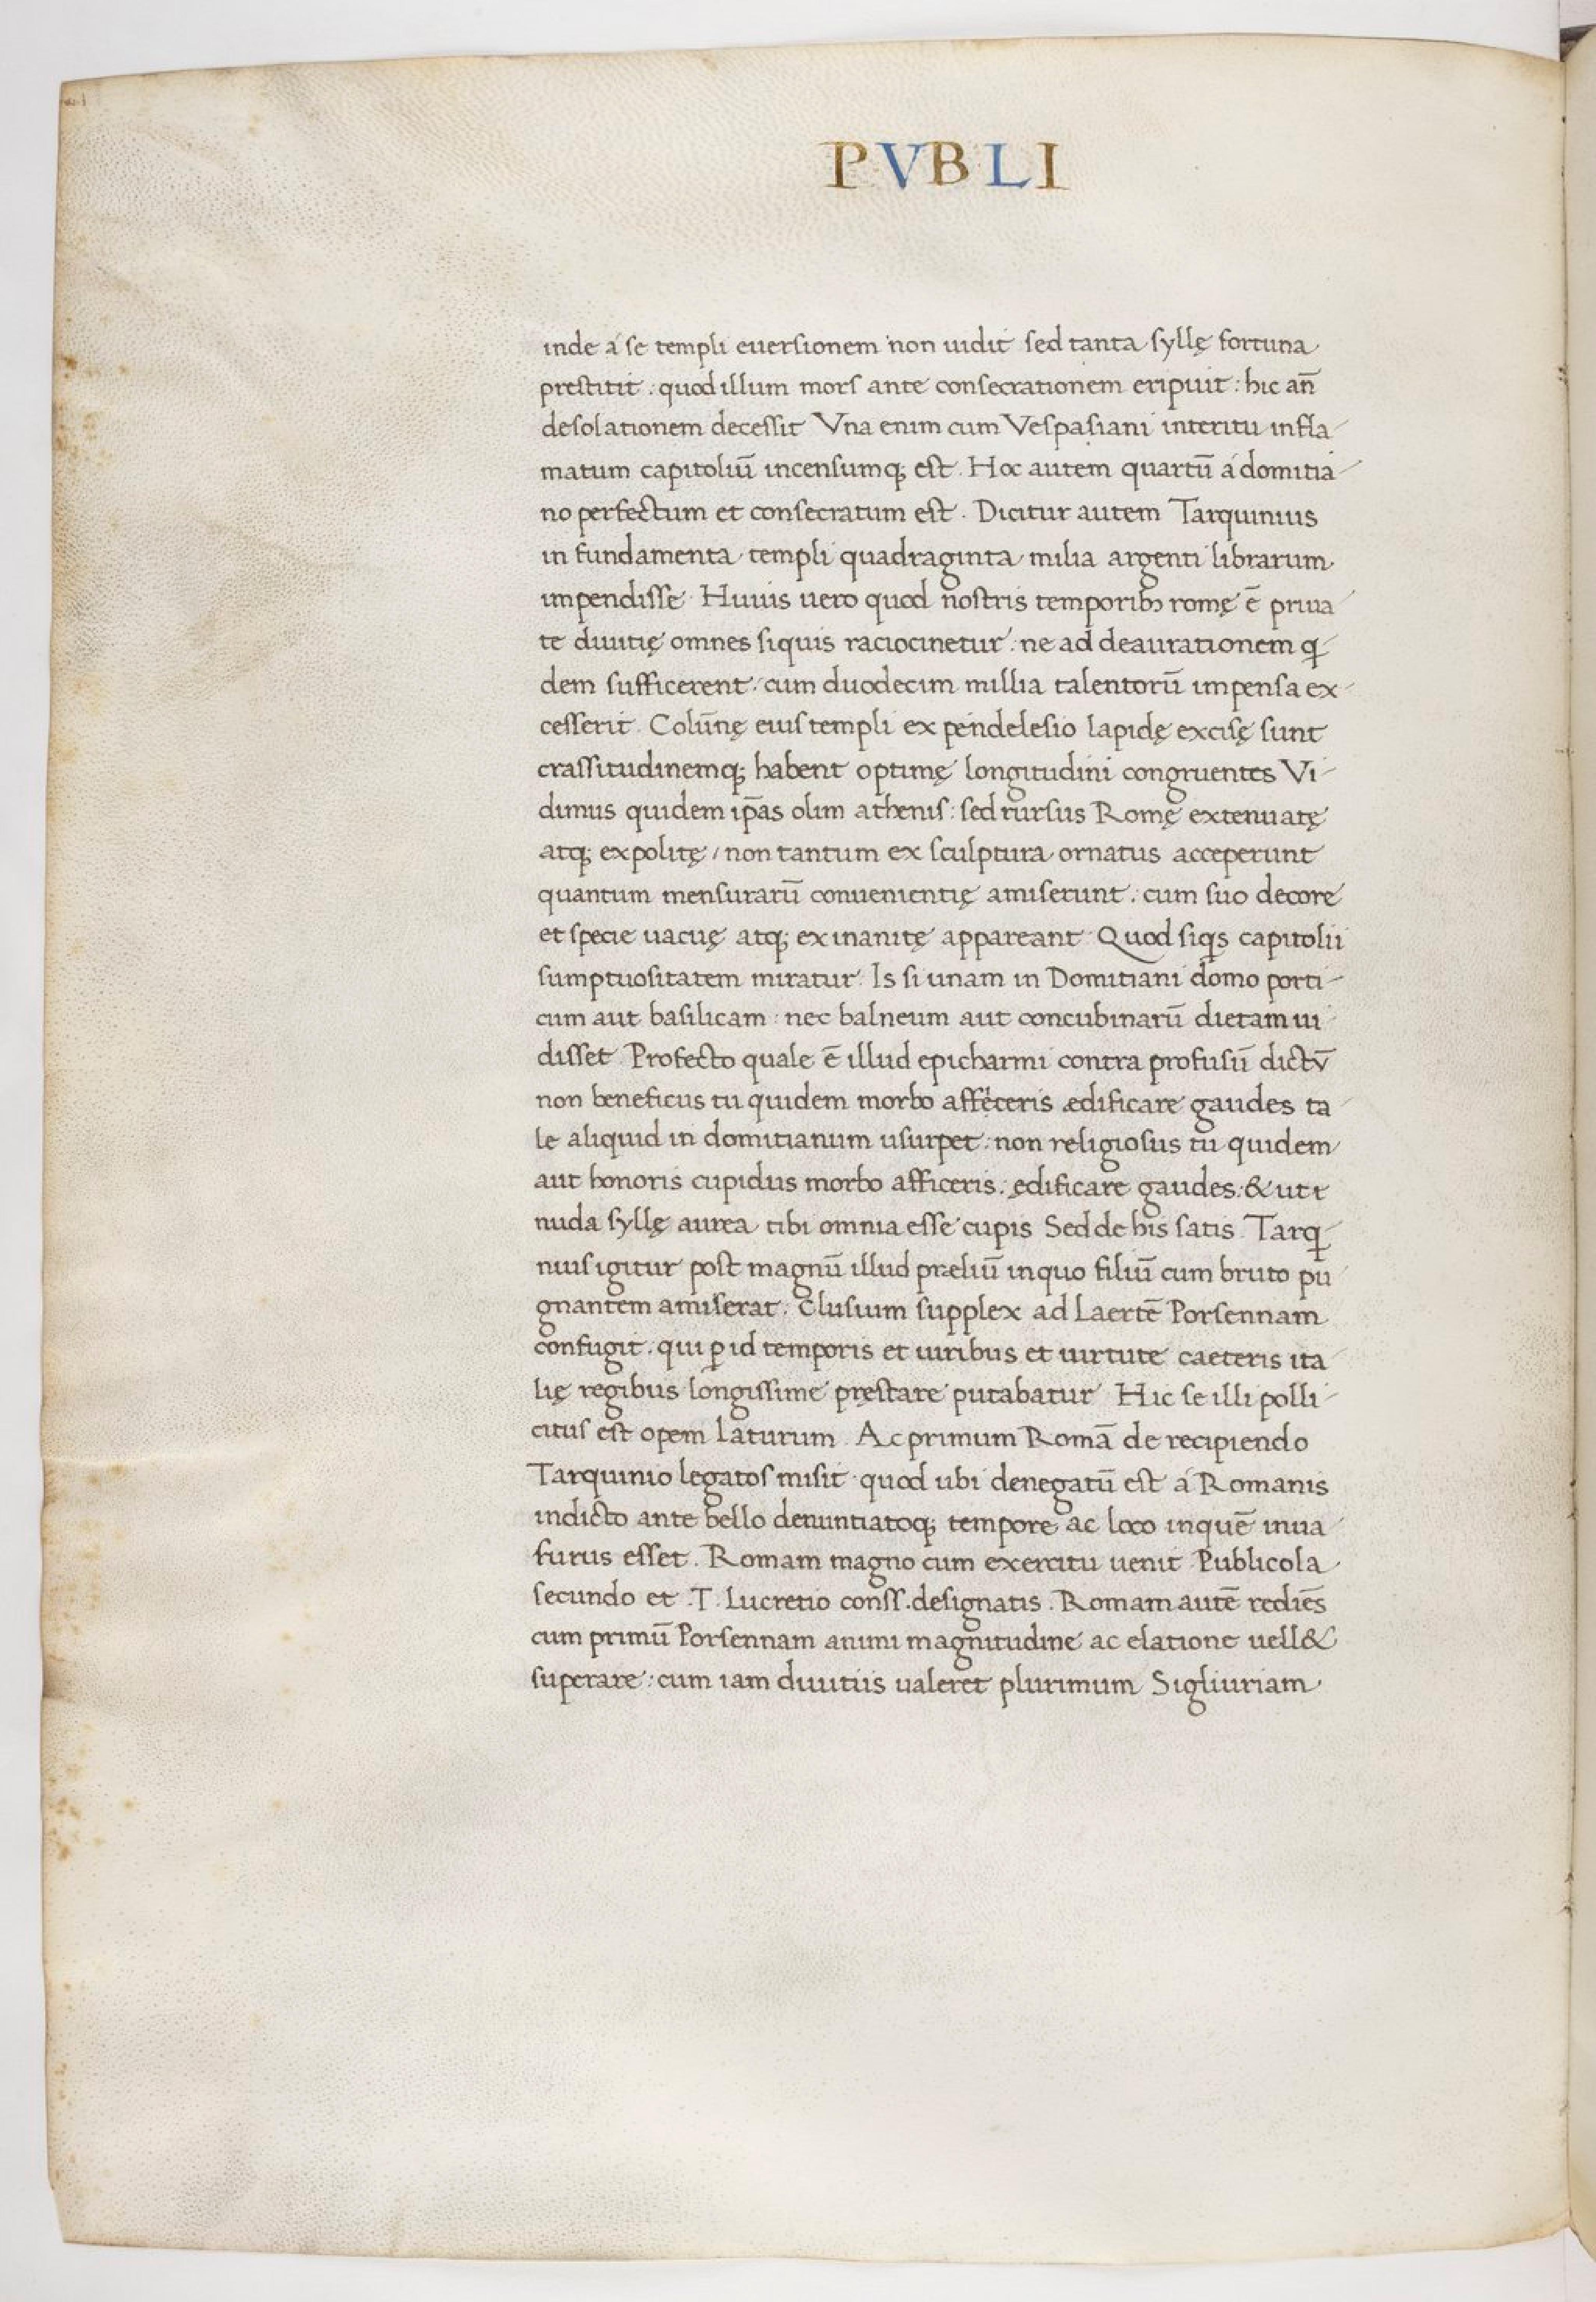 PVBLI
inde á se templi euersionem non uidit sed tanta syllę fortuna
prestitit : quod illum mors ante consecrationem eripuit : hic an̄
desolationem decessit Vna enim cum Vespasiani interitu infla-
matum capitoliū incensumq; est . Hoc autem quartū á domitia-
no perfectum et consecratum est . Dicitur autem Tarquinius
in fundamenta templi quadraginta milia argenti librarum
impendisse Huius uero quod nostris temporibꝫ romę ē priua-
te diuitię omnes siquis raciocinetur : ne ad deaurationem qi-
dem sufficerent : cum duodecim millia talentorū impensa ex-
cesserit . Colūnę eius templi ex pendelesio lapidę excisę sunt
crassitudinemq; habent optimę longitudini congruentes Vi-
dimus quidem ip̄as olim athenis : sed rursus Romę extenuatę
atq; expolitę / non tantum ex sculptura ornatus acceperunt
quantum mensurarū conuenientię amiserunt : cum suo decore
et specie uacuę atq; exinanitę appareant Quod siqis capitolii
sumptuositatem miratur . Is si unam in Domitiani domo porti-
cum aut basilicam : nec balneum aut concubinarū dietam ui-
disset . Profecto quale ē illud epicharmi contra profusū dictv̄
non beneficus tu quidem morbo affeceris ædificare gaudes ta-
le aliquid in domitianum usurpet : non religiosus tu quidem
aut honoris cupidus morbo afficeris : ędificare gaudes : & ut t
nuda syllę aurea tibi omnia esse cupis Sed de his satis . Tarqi-
nius igitur post magnū illud præliū in quo filiū cum bruto pu-
gnantem amiserat : Clusium supplex ad Laertē Porsennam
confugit . qui ꝑ id temporis et uiribus et uirtute caeteris ita-
lię regibus longissime pręstare putabatur Hic se illi polli-
citus est opem laturum . Ac primum Romā de recipiendo
Tarquinio legatos misit . quod ubi denegatū est á Romanis
indicto ante bello denuntiatoq; tempore ac loco in quē inua-
surus esset . Romam magno cum exercitu uenit Publicola
secundo et .T. Lucretio conss. designatis . Romam autē rediēs
cum primū Porsennam animi magnitudine ac elatione uell&
superare : cum iam diuitiis ualeret plurimum Sigliuriam